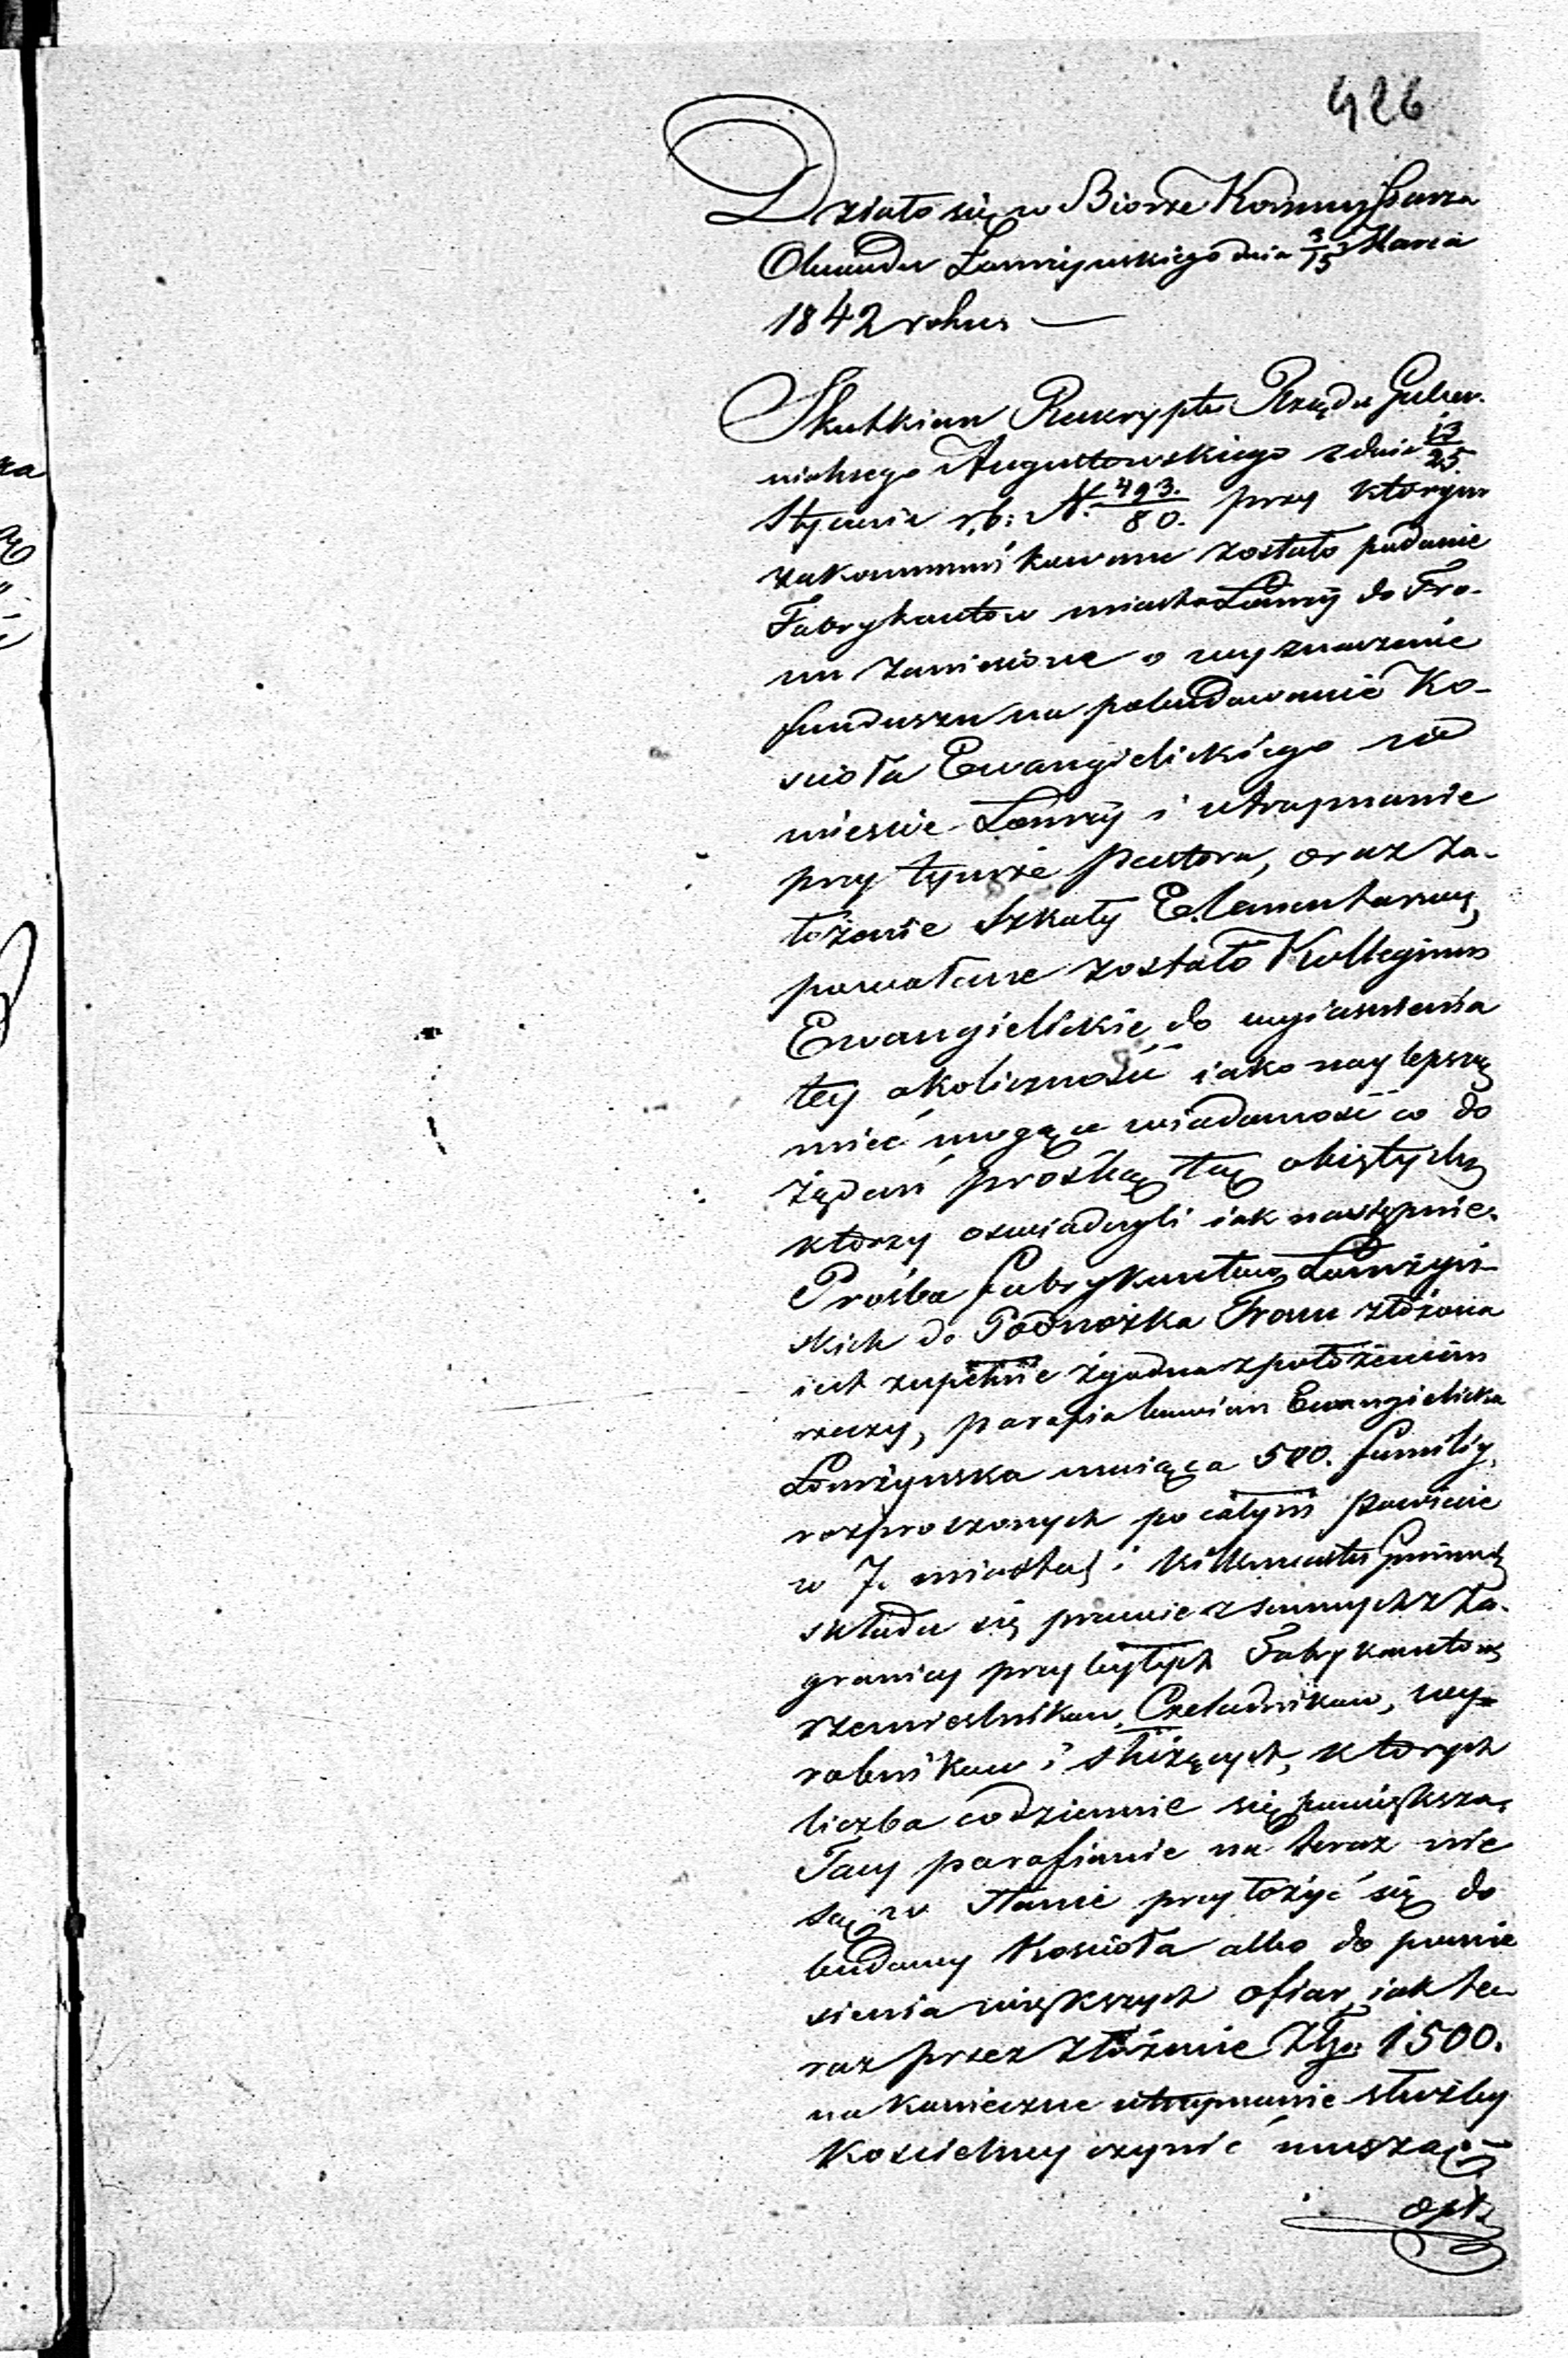 426
Działo się w Biorze Kommyssarza
Obwodu Łomżyńskiego dnia 3/15 Marca
1842 roku —
Skutkiem Reskryptu Rządu Guber-
nialnego Augustowskiego z dnia 13/25
Stycznia r, b: N. 493./80. przy którym
zakommunikowane zostało podanie
Fabrykantów miasta Łomży do Tro-
nu zaniesione o wyznaczenie
funduszu na pobudowanie Ko-
scioła Ewangielickiego w
miescie Łomży i utrzymanie
przy tymże Pastora, oraz za-
łożenie Szkoły Elementarney,
powołane zostało Kollegium
Ewangielickie do wyiasnienia
tey okoliczności iako naylepszą
mieć mogące wiadomość co do
żądań proźbą tą obiętych
ktorzy oswiadczyli iak następuie.
Prośba fabrykantow Łomżyń-
skich do Podnóżka Tronu złożona
iest zupełnie zgodna z położeniem
rzeczy, parafia bowiem Ewangielicka
Łomżynska maiąca 500. familiy,
rozproszonych po całym Powiecie
w 7. miastach i kilkunastu Gminach
składa się prawie z samych z za-
granicy przybyłych Fabrykantow
rzemieslnikow, Czeladnikow, wy-
robnikow i służących, ktorych
liczba codziennie się powiększa,
Tacy parafianie na teraz nie
są w stanie przyłożyć się do
budowy Koscioła albo do ponie
sienia większych ofiar, iak te-
raz przez złożenie Złp: 1500.
na konieczne utrzymanie służby
Koscielney czynić muszą